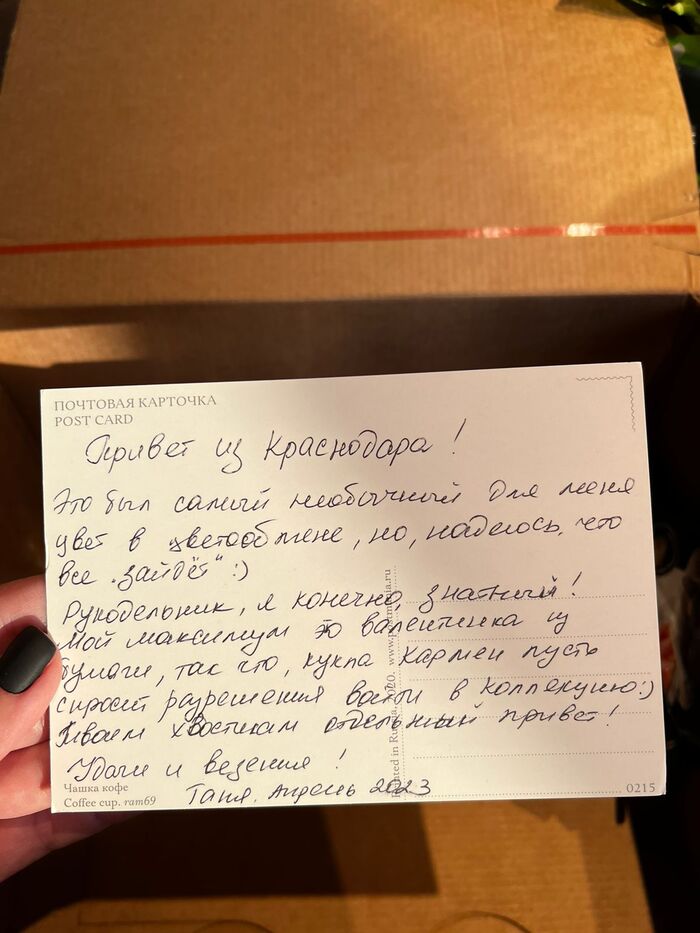 ПОЧТОВАЯ КАРТОЧКА
POST CARD
Привет из Краснодара!
Это был самый необычный для меня
цвет в цветообмене, но, надеюсь, что
все "зайдёт" :)
Рукодельник, я конечно, знатный!
Мой максимум это валентинка из
бумаги, так что, кукла Кармен пусть
спросит разрешения войти в коллекцию:)
Твоим хвостикам отдельный привет!
Удачи и везения!
Таня. Апрель 2023
Чашка кофе
Coffee cup. ram69
0215